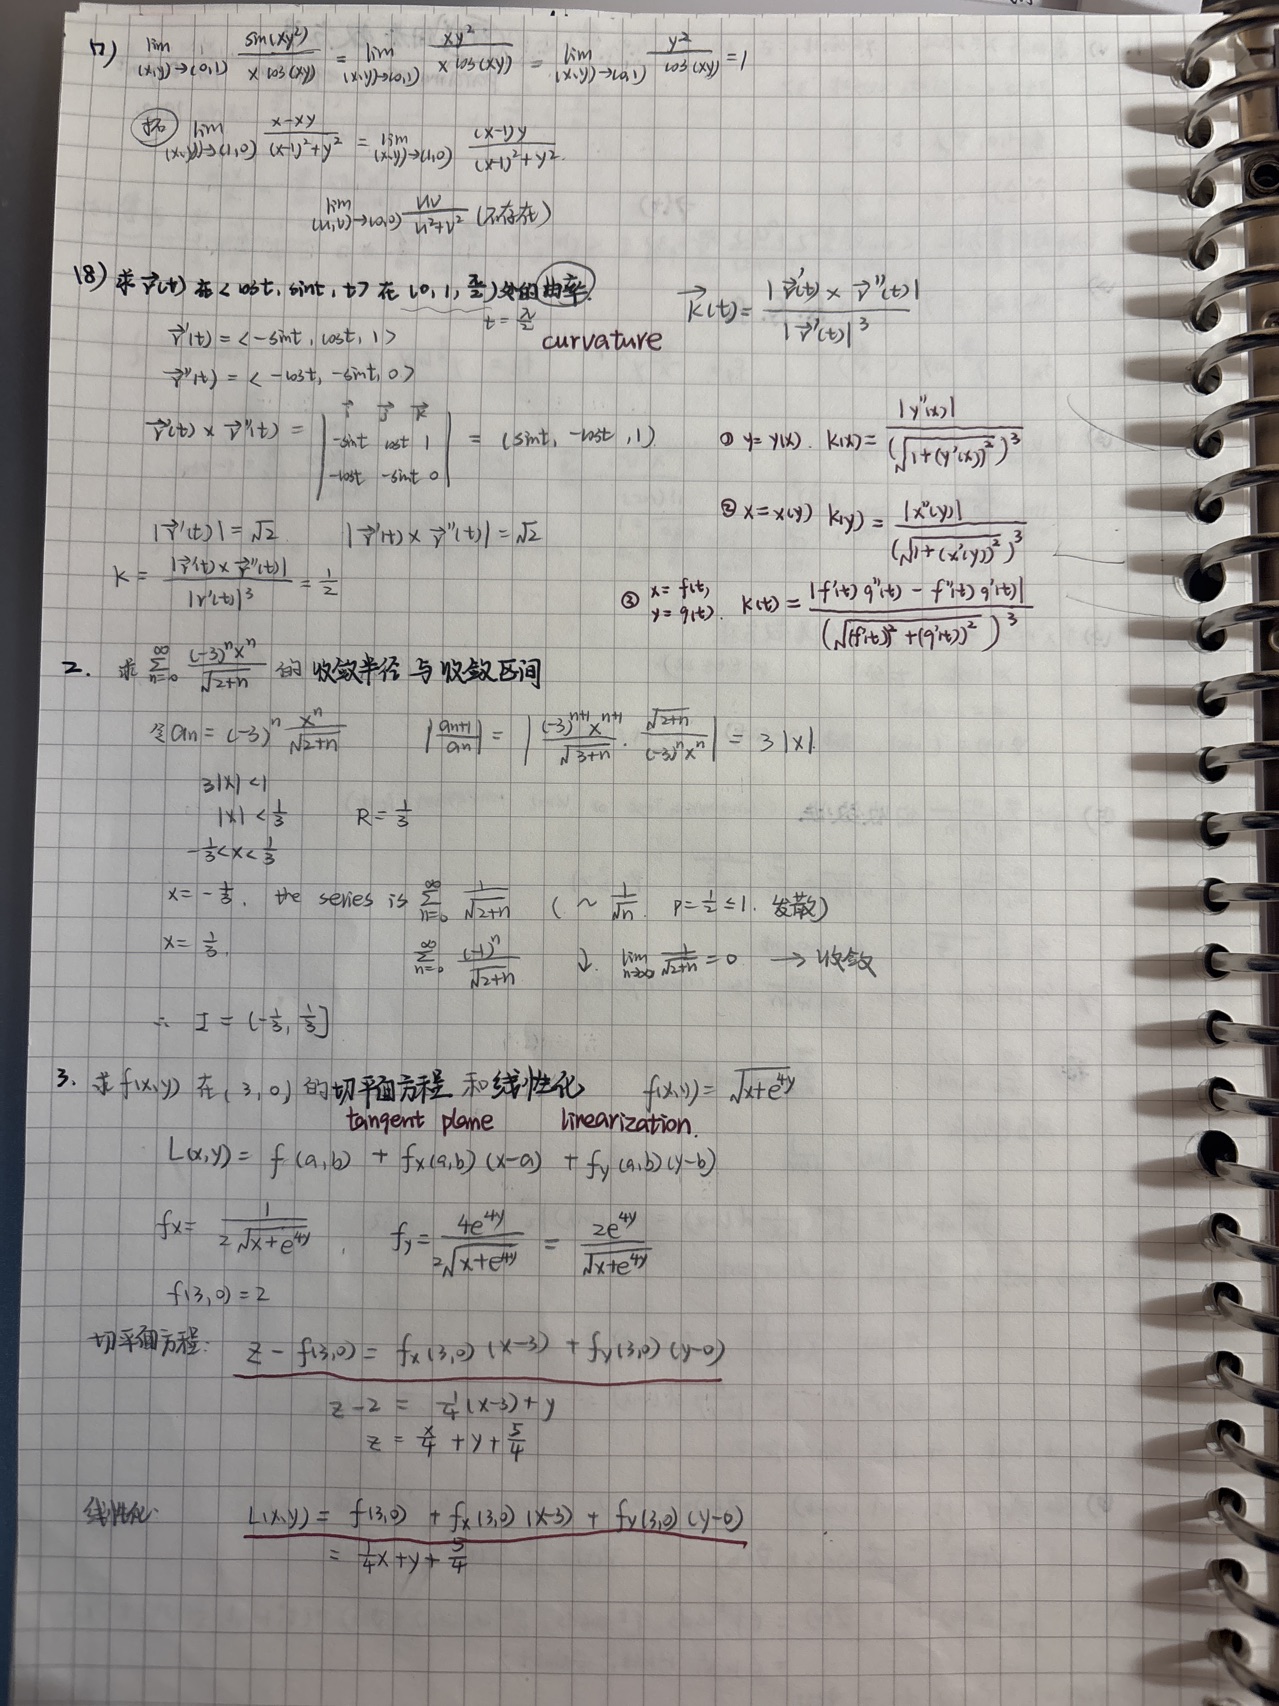 17) lim(x,y)→(0,1) sin(xy²)/(x cos(xy)) = lim(x,y)→(0,1) xy²/(x cos(xy)) = lim(x,y)→(0,1) y²/cos(xy) = 1
lim(x,y)→(1,0) (x-xy)/((x-1)²+y²) = lim(x,y)→(1,0) (x-1)y/((x-1)²+y²)
lim(u,v)→(0,0) uv/(u²+v²) (不存在)
18) 求 r⃗(t) 在 <cost, sint, t> 在 (0, 1, π/2) 处的曲率.
t = π/2
curvature
K⃗(t) = |r⃗'(t) × r⃗''(t)| / |r⃗'(t)|³
r⃗'(t) = <-sint, cost, 1>
r⃗''(t) = <-cost, -sint, 0>
r⃗'(t) × r⃗''(t) = | i⃗ j⃗ k⃗ ; -sint cost 1 ; -cost -sint 0 | = (sint, -cost, 1)
|r⃗'(t)| = √2 |r⃗'(t) × r⃗''(t)| = √2
K = |r⃗'(t) × r⃗''(t)| / |r'(t)|³ = 1/2
① y = y(x). k(x) = |y''(x)| / (√(1+(y'(x))²))³
② x = x(y) k(y) = |x''(y)| / (√(1+(x'(y))²))³
③ x = f(t), y = g(t). k(t) = |f'(t) g''(t) - f''(t) g'(t)| / (√((f'(t))² + (g'(t))²))³
2. 求 ∑(n=0→∞) (-3)ⁿxⁿ/√(2+n) 的 收敛半径 与 收敛区间
令 an = (-3)ⁿ xⁿ/√(2+n) |an+1/an| = |(-3)ⁿ⁺¹xⁿ⁺¹/√(3+n) · √(2+n)/((-3)ⁿxⁿ)| = 3|x|.
3|x| < 1
|x| < 1/3 R = 1/3
-1/3 < x < 1/3
x = -1/3. the series is ∑(n=0→∞) 1/√(2+n) (~ 1/√n. p = 1/2 ≤ 1. 发散)
x = 1/3. ∑(n=0→∞) (-1)ⁿ/√(2+n) ↓. lim n→∞ 1/√(2+n) = 0 → 收敛
∴ I = (-1/3, 1/3]
3. 求 f(x,y) 在 (3, 0) 的 切平面方程 和 线性化 f(x,y) = √(x+e⁴ʸ)
tangent plane linearization.
L(x,y) = f(a,b) + fx(a,b)(x-a) + fy(a,b)(y-b)
fx = 1/(2√(x+e⁴ʸ)), fy = 4e⁴ʸ/(2√(x+e⁴ʸ)) = 2e⁴ʸ/√(x+e⁴ʸ)
f(3,0) = 2
切平面方程: z - f(3,0) = fx(3,0)(x-3) + fy(3,0)(y-0)
z-2 = 1/4(x-3) + y
z = x/4 + y + 5/4
线性化: L(x,y) = f(3,0) + fx(3,0)(x-3) + fy(3,0)(y-0)
= 1/4x + y + 5/4